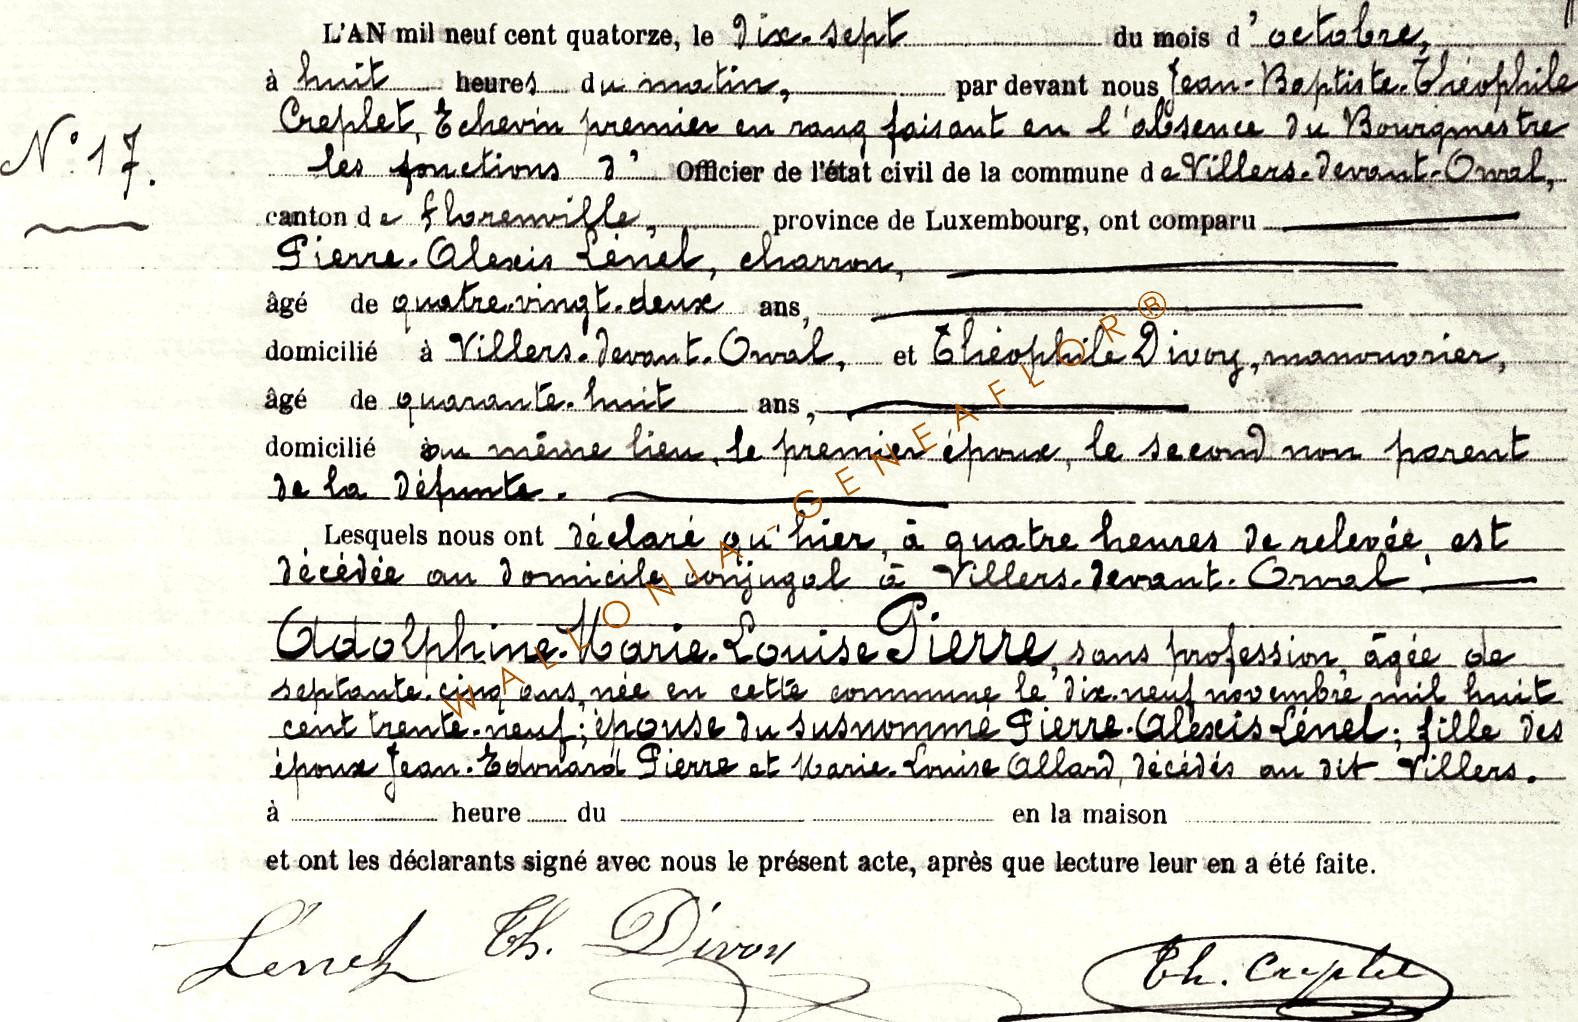 L'AN mil neuf cent quatorze, le dix-sept du mois d'octobre,
à huit heures du matin, par devant nous Jean-Baptiste-Théophile
Creplet, Echevin premier en rang faisant en l'absence du Bourgmestre
N° 17.
les fonctions d' Officier de l'état civil de la commune de Villers-devant-Orval,
canton de Florenville, province de Luxembourg, ont comparu
Pierre-Alexis Lénel, charron,
âgé de quatre-vingt-deux ans,
domicilié à Villers-devant-Orval, et Théophile Divoy, manouvrier,
âgé de quarante-huit ans,
domicilié au même lieu, le premier époux, le second non parent
de la défunte.
Lesquels nous ont déclaré qu'hier, à quatre heures de relevée, est
décédée au domicile conjugal à Villers-devant-Orval
Adolphine-Marie-Louise Pierre, sans profession, âgée de
septante-cinq ans, née en cette commune le dix-neuf novembre mil huit
cent trente-neuf; épouse du susnommé Pierre-Alexis Lénel; fille des
époux Jean-Edouard Pierre et Marie-Louise Allard, décédés au dit Villers.
à heure du en la maison
et ont les déclarants signé avec nous le présent acte, après que lecture leur en a été faite.
Lénel Th. Divoy Th. Creplet
WALLONIA-GENEAFLOR®